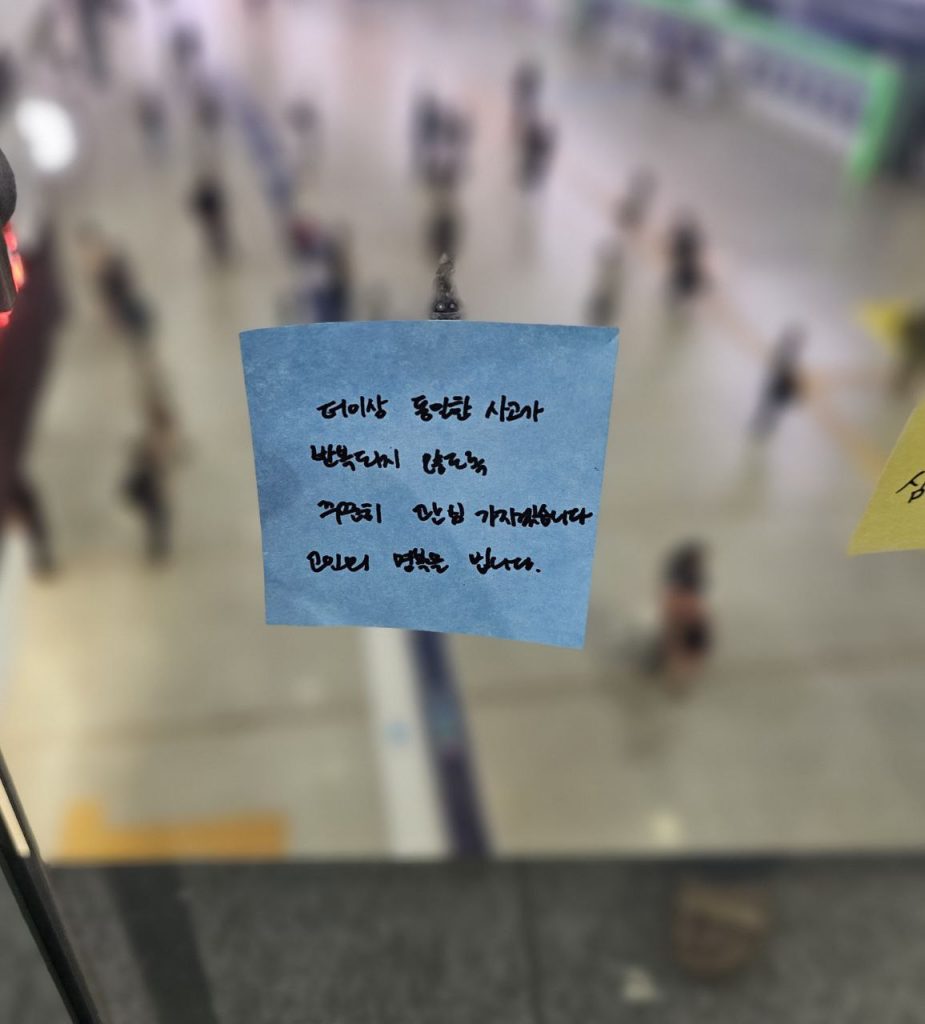 더이상 동일한 사고가
반복되지 않도록
꾸준히 관심 가지겠습니다
고인의 명복을 빕니다.